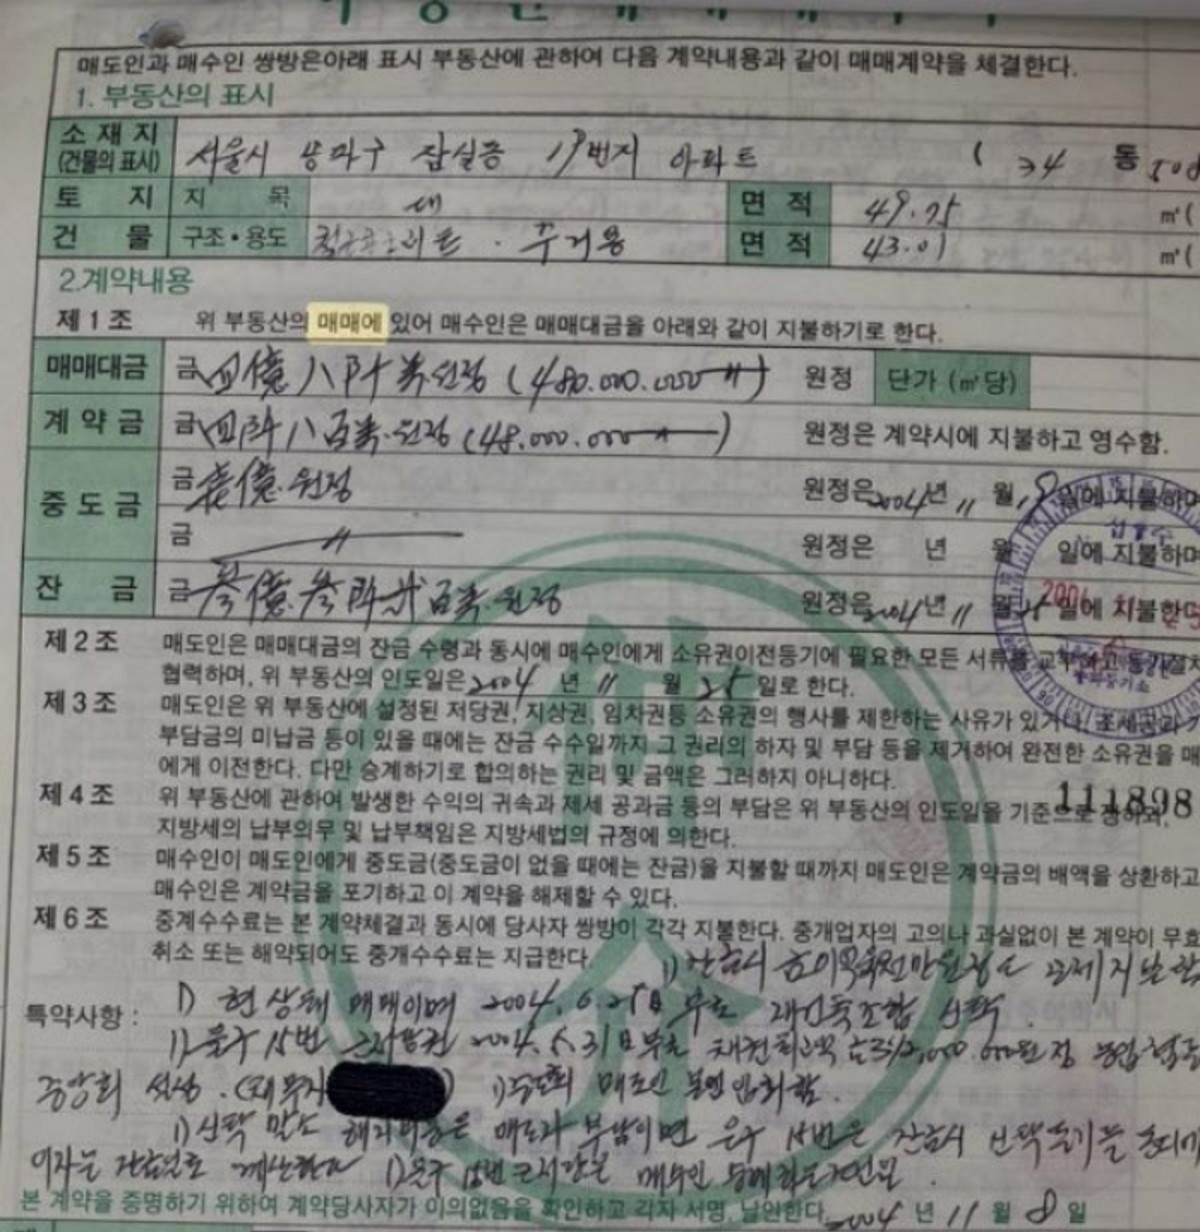 매도인과 매수인 쌍방은아래 표시 부동산에 관하여 다음 계약내용과 같이 매매계약을 체결한다.
1. 부동산의 표시
소재지 (건물의 표시) 서울시 송파구 잠실동 19번지 아파트 ( 34 동 508
토 지 지 목 대 면 적 49.75 ㎡(
건 물 구조·용도 철근콘크리트 · 주거용 면 적 43.01 ㎡(
2.계약내용
제1조 위 부동산의 매매에 있어 매수인은 매매대금을 아래와 같이 지불하기로 한다.
매매대금 금 四億八阡萬원정 (480.000.000 〃) 원정 단가 (㎡당)
계약금 금 四阡八百萬원정 (48.000.000 ) 원정은 계약시에 지불하고 영수함.
중도금 금 壹億원정 원정은 2004년 11 월 18 일에 지불하며
금 〃 원정은 년 월 일에 지불하며
잔 금 금 參億參阡弍百萬원정 원정은 2004년 11 월 25 일에 지불한다
제2조 매도인은 매매대금의 잔금 수령과 동시에 매수인에게 소유권이전등기에 필요한 모든 서류를 교부하고 등기절
협력하며, 위 부동산의 인도일은 2004 년 11 월 25 일로 한다.
제3조 매도인은 위 부동산에 설정된 저당권, 지상권, 임차권등 소유권의 행사를 제한하는 사유가 있거나, 조세공과
부담금의 미납금 등이 있을 때에는 잔금 수수일까지 그 권리의 하자 및 부담 등을 제거하여 완전한 소유권을 매
에게 이전한다. 다만 승계하기로 합의하는 권리 및 금액은 그러하지 아니하다.
111898
제4조 위 부동산에 관하여 발생한 수익의 귀속과 제세 공과금 등의 부담은 위 부동산의 인도일을 기준으로 정하되,
지방세의 납부의무 및 납부책임은 지방세법의 규정에 의한다.
제5조 매수인이 매도인에게 중도금(중도금이 없을 때에는 잔금)을 지불할 때까지 매도인은 계약금의 배액을 상환하고
매수인은 계약금을 포기하고 이 계약을 해제할 수 있다.
제6조 중계수수료는 본 계약체결과 동시에 당사자 쌍방이 각각 지불한다. 중개업자의 고의나 과실없이 본 계약이 무효
취소 또는 해약되어도 중개수수료는 지급한다.
1) 잔금시
특약사항 : 1) 현 상태 매매이며 2004. 6. 25일 부로 재건축조합 신탁.
1) 을구 15번 근저당권 2004. 5. 31일부로 채권최고액 금312,000.000원정 농업협동
중앙회 설정. (채무자 ) 1) 중도금 매도인
1) 신탁 말소 해지비용은 매도자 부담이며 을구 15번은 잔금시
이자는 잔금일로 계산한다 1) 을구 15번 근저당은 매수인
본 계약을 증명하기 위하여 계약당사자가 이의없음을 확인하고 각자 서명, 날인한다. 2004 년 11 월 8 일
仲介